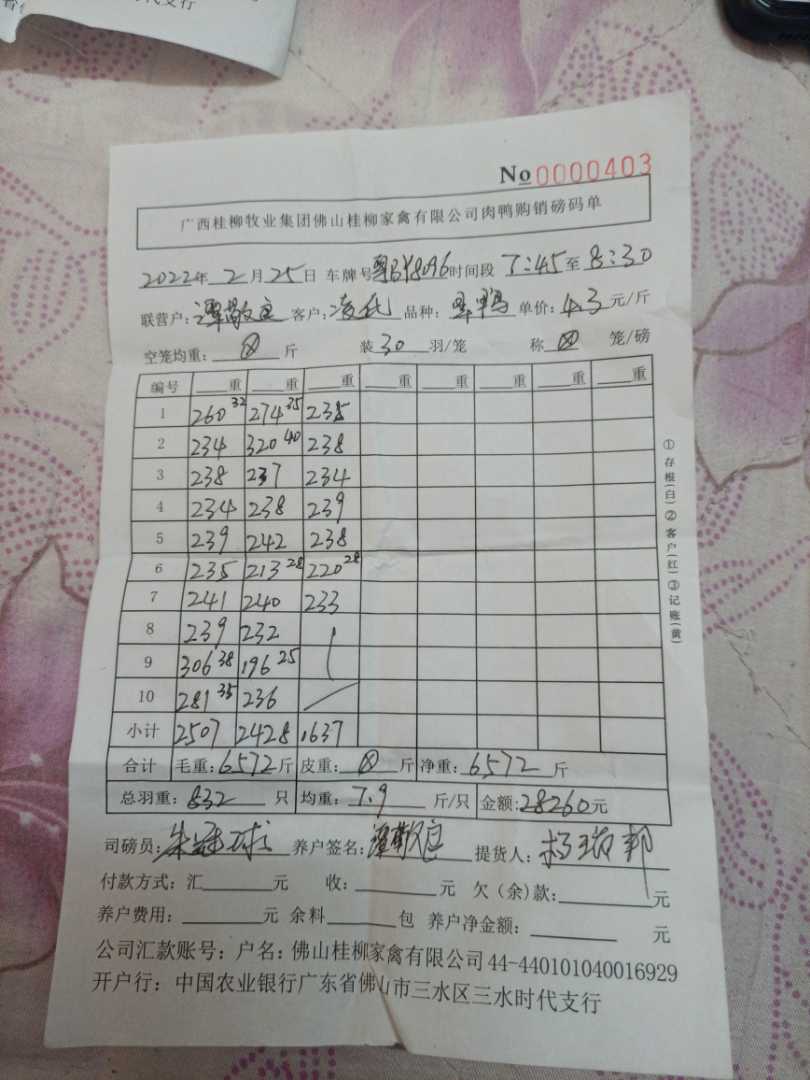 时代支行
No 0000403
广西桂柳牧业集团佛山桂柳家禽有限公司肉鸭购销磅码单
2022年 2月25日 车牌号 粤BY8096 时间段 7:45 至 8:30
联营户: 谭敬 客户: 凌 品种: 单价: 4.3 元/斤
空笼均重: ⊗ 斤 装 30 羽/笼 称 ⊗ 笼/磅
编号 重 重 重 重 重 重 重 重
1 260 32 274 35 235
2 234 320 40 238
3 238 237 234
4 234 238 239
5 239 242 238
6 235 213 28 220 28
7 241 240 233
8 239 232
9 306 38 196 25
10 281 35 236
小计 2507 2428 1637
合计 毛重: 6572 斤 皮重: ⊗ 斤 净重: 6572 斤
总羽重: 832 只 均重: 7.9 斤/只 金额: 28260元
司磅员: 朱 球 养户签名: 谭敬 提货人: 杨 邦
付款方式: 汇 元 收: 元 欠(余)款: 元
养户费用: 元 余料 包 养户净金额: 元
公司汇款账号: 户名: 佛山桂柳家禽有限公司 44-440101040016929
开户行: 中国农业银行广东省佛山市三水区三水时代支行
①存根(白)②客户(红)③记账(黄)